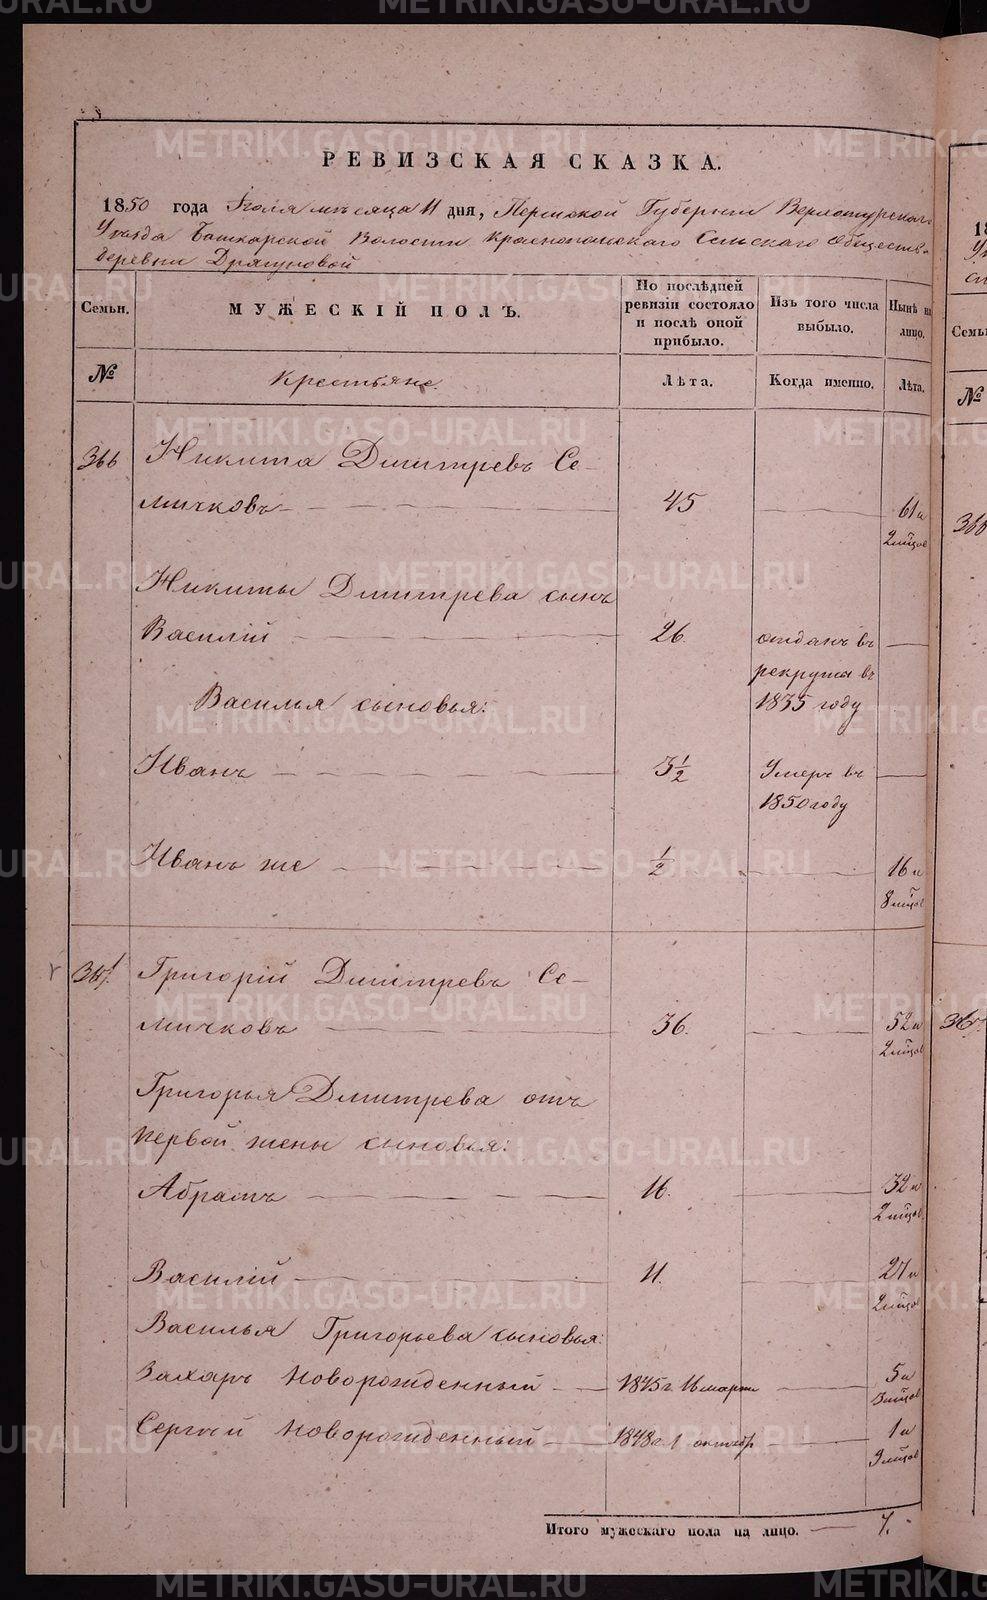 РЕВИЗСКАЯ СКАЗКА.
1850 года Іюля мѣсяца 11 дня, Пермской Губерніи Верхотурскаго
Уѣзда Башкарской Волости Краснопольскаго Сельскаго Общества
деревни Драгуновой
Семьи.
МУЖЕСКІЙ ПОЛЪ.
По послѣдней
ревизіи состояло
и послѣ оной
прибыло.
Изъ того числа
выбыло.
Нынѣ на
лицо.
№
Крестьяне.
Лѣта.
Когда именно.
Лѣта.
366 Никита Дмитревъ Се-
мичковъ 45 61 и
2 мѣсяц
Никиты Дмитрева сынъ
Василій 26. отданъ въ
рекруты въ
Василья сыновья: 1835 году
Иванъ 3½ Умеръ въ
1850 году
Иванъ же ½ 16 и
8 мѣсяц
367. Григорій Дмитревъ Се-
мичковъ 36. 52 и
2 мѣсяц
Григорья Дмитрева отъ
первой жены сыновья:
Абрамъ 16. 32 и
2 мѣсяц
Василій 11. 27 и
2 мѣсяц
Василья Григорьева сыновья:
Захаръ новорожденный 1845 г 16 марта 5 и
3 мѣсяц
Сергѣй новорожденный 1848 г 1 октябр 1 и
9 мѣсяц
Итого мужескаго пола на лицо. 7.
METRIKI.GASO-URAL.RU